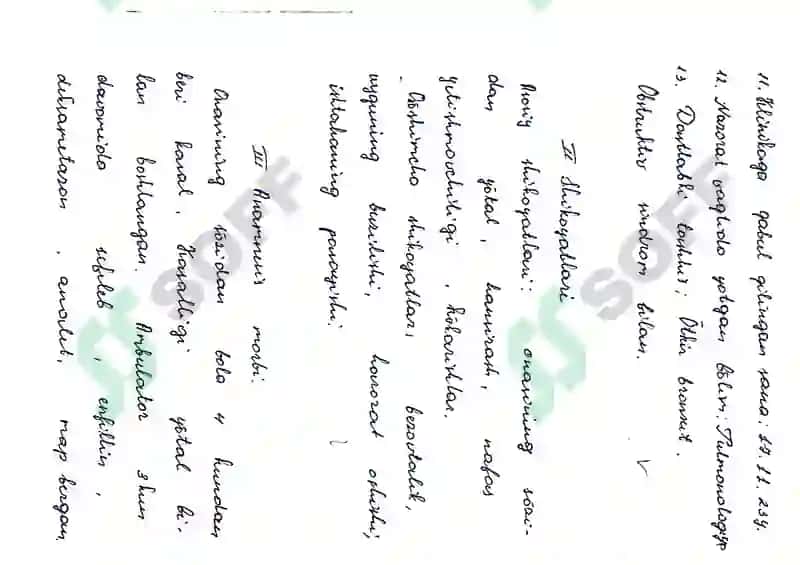 11. Klinikaga qabul qilingan sana: 27.11.23y.
12. Nazorat vaqtida yotgan bo'lim: Pulmonologiya
13. Dastlabki tashhis: O'tkir bronxit.
Obstruktiv sindrom bilan.
II Shikoyatlari
Asosiy shikoyatlari: onasining so'zi-
dan yo'tal, hansirash, nafas
yetishmovchiligi, ko'karishlar.
Qo'shimcha shikoyatlari, bezovtalik,
uyquning buzilishi, harorat oshishi,
ishtahaning pasayishi.
III Anamnesis morbi.
Onasining so'zidan bola 4 kundan
beri kasal. Kasalligi yo'tal bi-
lan boshlangan. Ambulator 3 kun
davomida sefleb,
deksametazon, analet,
SOFF
SOFF